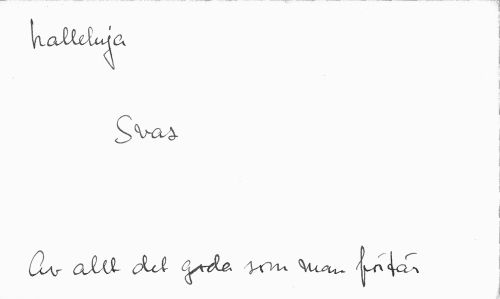 halleluja
Svas
Av allt det goda som man förtär